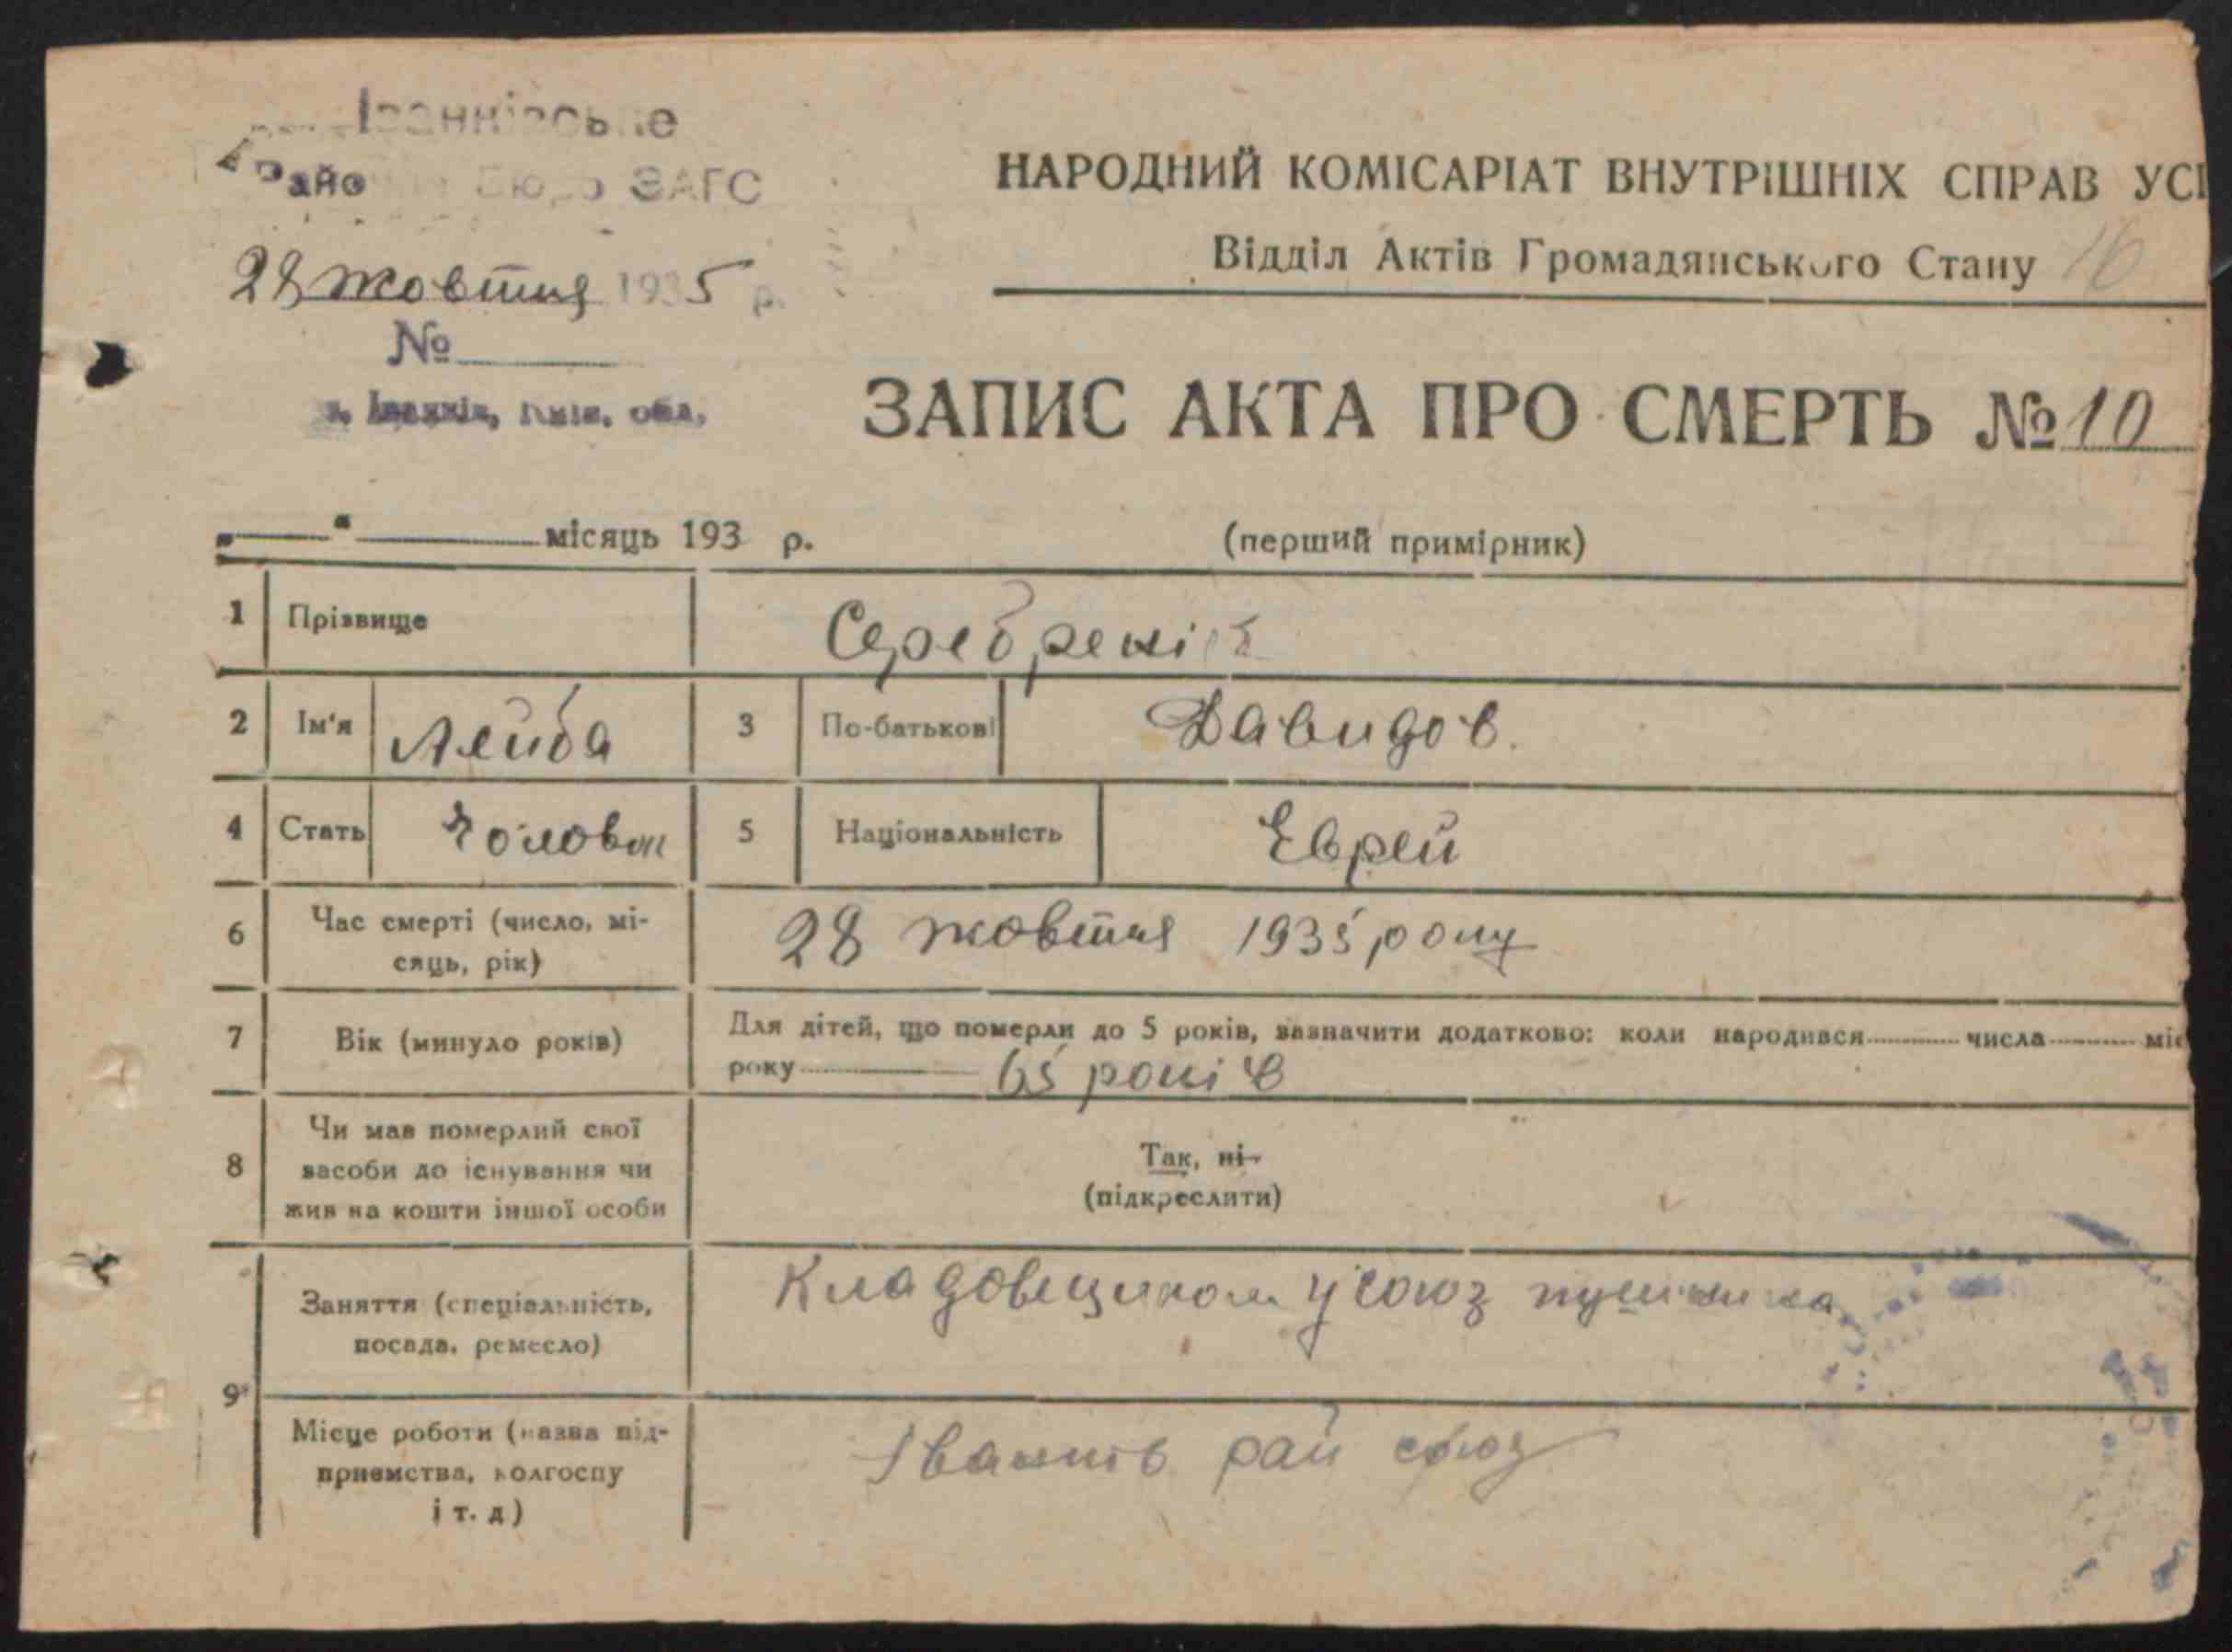 Іванківське
Бюро ЗАГС
28 жовтня 1935 р.
№
м. Іванків, Київ. обл.
НАРОДНИЙ КОМІСАРІАТ ВНУТРІШНІХ СПРАВ УС
Відділ Актів Громадянського Стану 16
ЗАПИС АКТА ПРО СМЕРТЬ № 10
„ “ місяць 193 р.
(перший примірник)
1 Прізвище Серебренік
2 Ім'я Лейба 3 По-батькові Давидов.
4 Стать Чоловік 5 Національність Еврей
6 Час смерті (число, мі-
сяць, рік) 28 жовтня 1935 року
7 Вік (минуло років) Для дітей, що померли до 5 років, зазначити додатково: коли народився числа міс
року 65 років
8 Чи мав померлий свої
засоби до існування чи
жив на кошти іншої особи
Так, ні
(підкреслити)
9 Заняття (спеціальність,
посада, ремесло) Кладовщиком у союз
Місце роботи (назва під-
приємства, колгоспу
і т. д) Іванків рай союз